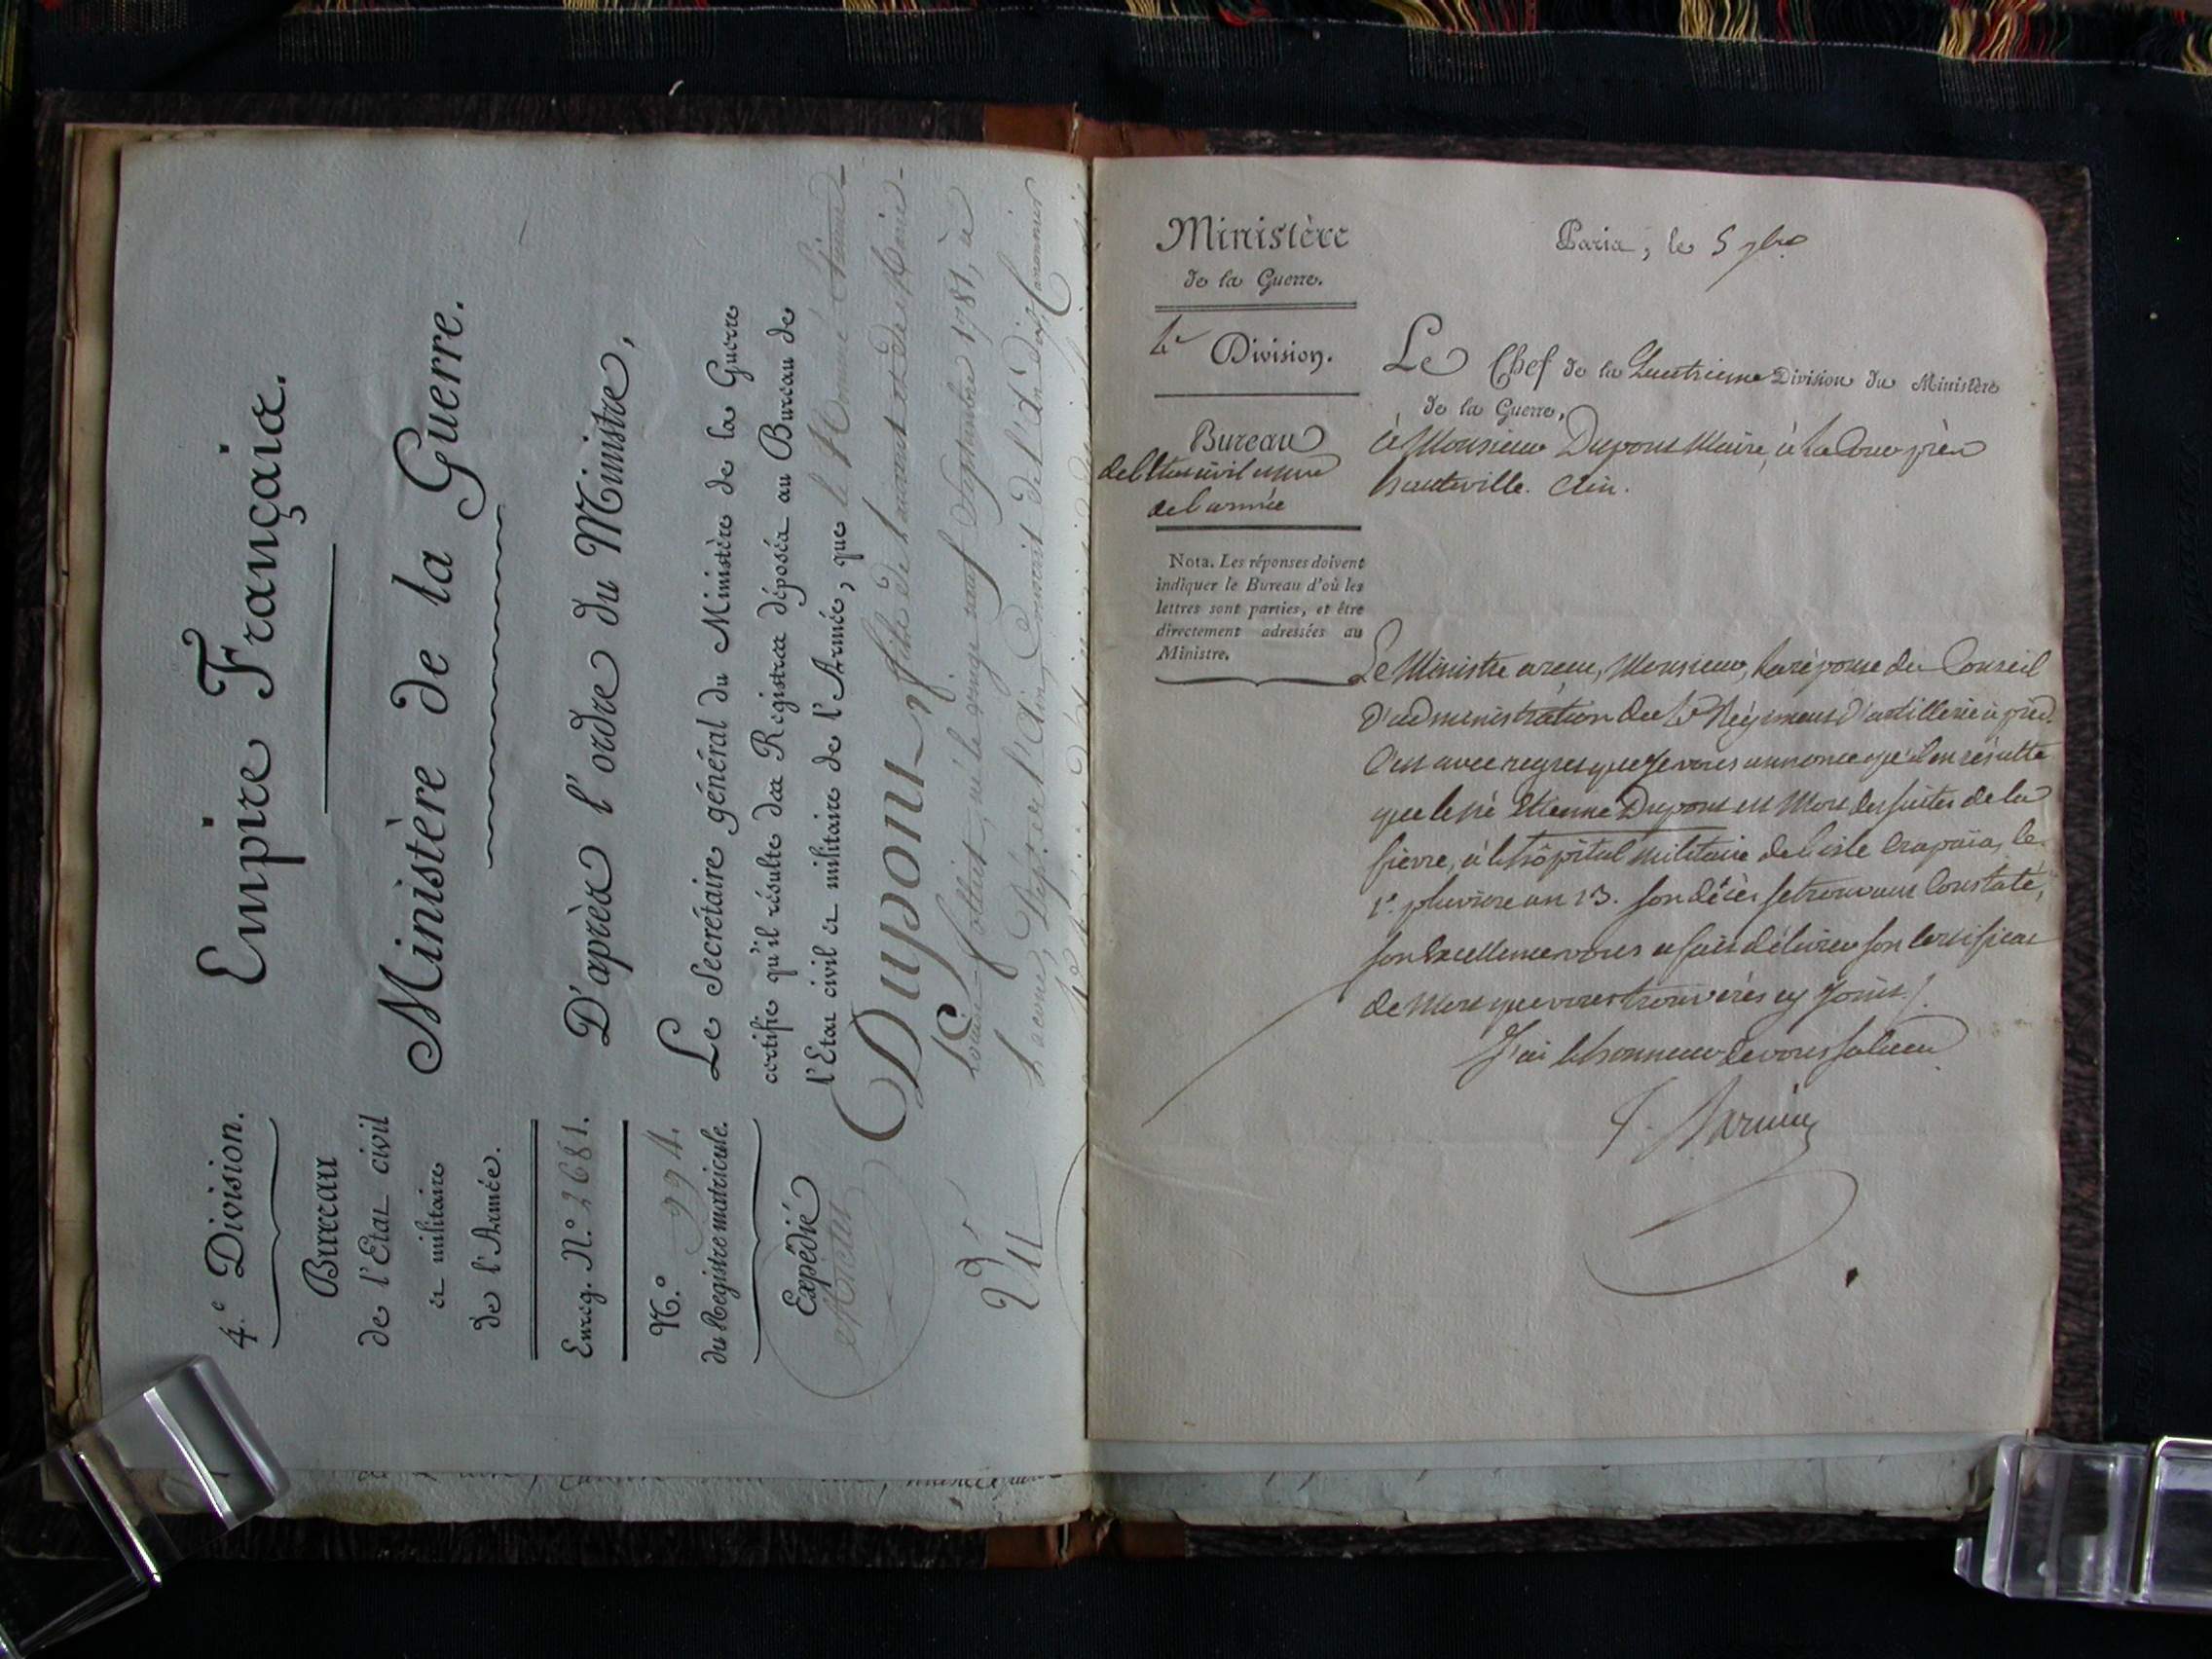 Empire Français.
Ministère de la Guerre.
D'après l'ordre du Ministre,
Le Secrétaire général du Ministère de la Guerre
certifie qu'il résulte des Registres déposés au Bureau de
l'Etat civil et militaire de l'Armée, que le Nommé Etienne
Dupont fils de Laurant et de Marie
Louise né le vingt neuf Septembre 1781, à
Lacoux, Dépt. de l'Ain, Conscrit de l'An dix, Canonnier
4.e Division.
Bureau
de l'Etat civil
et militaire
de l'Armée.
Enreg. N.º 2681.
N.º 994.
du Registre matricule.
Expédié
Ministère
de la Guerre.
4e Division.
Bureau
de l'Etat civil et mre
de l'armée
Nota. Les réponses doivent
indiquer le Bureau d'où les
lettres sont parties, et être
directement adressées au
Ministre.
Paris, le 5 7bre
Le Chef de la Quatrieme Division du Ministère
de la Guerre,
à Monsieur Dupont Maire, à La Coux près
hauteville. Ain.
Le Ministre a reçu, Monsieur, la réponse du Conseil
D'administration du Régiment d'artillerie à pied.
C'est avec regret que je vous annonce qu'il en résulte
que le né Etienne Dupont est Mort des suites de la
fièvre, à l'hôpital militaire de l'isle , le
1er pluviose an 13. son décès se trouvant Constaté,
son Excellence vous a fait délivrer son Certificat
de Mort que vous trouverés cy Joint.
J'ai l'honneur de vous saluer